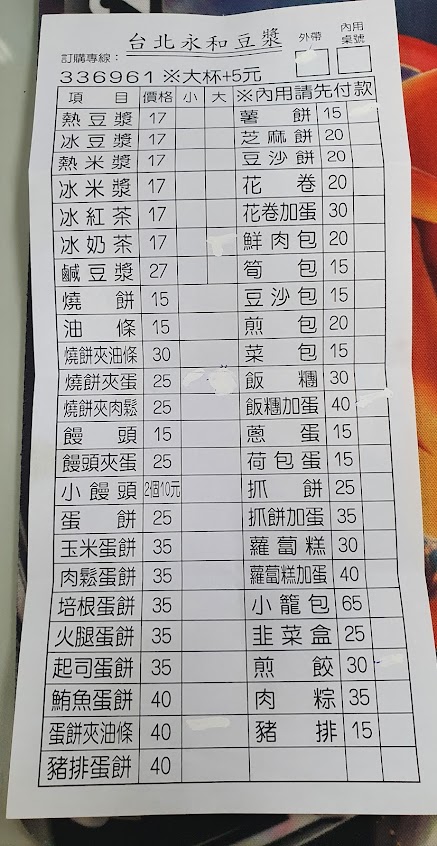 台北永和豆漿 外帶 內用桌號
訂購專線：
336961 ※大杯+5元
項目 價格 小 大 ※內用請先付款
熱豆漿 17 薯餅 15
冰豆漿 17 芝麻餅 20
熱米漿 17 豆沙餅 20
冰米漿 17 花卷 20
冰紅茶 17 花卷加蛋 30
冰奶茶 17 鮮肉包 20
鹹豆漿 27 筍包 15
燒餅 15 豆沙包 15
油條 15 煎包 20
燒餅夾油條 30 菜包 15
燒餅夾蛋 25 飯糰 30
燒餅夾肉鬆 25 飯糰加蛋 40
饅頭 15 蔥蛋 15
饅頭夾蛋 25 荷包蛋 15
小饅頭 2個10元 抓餅 25
蛋餅 25 抓餅加蛋 35
玉米蛋餅 35 蘿蔔糕 30
肉鬆蛋餅 35 蘿蔔糕加蛋 40
培根蛋餅 35 小籠包 65
火腿蛋餅 35 韭菜盒 25
起司蛋餅 35 煎餃 30
鮪魚蛋餅 40 肉粽 35
蛋餅夾油條 40 豬排 15
豬排蛋餅 40